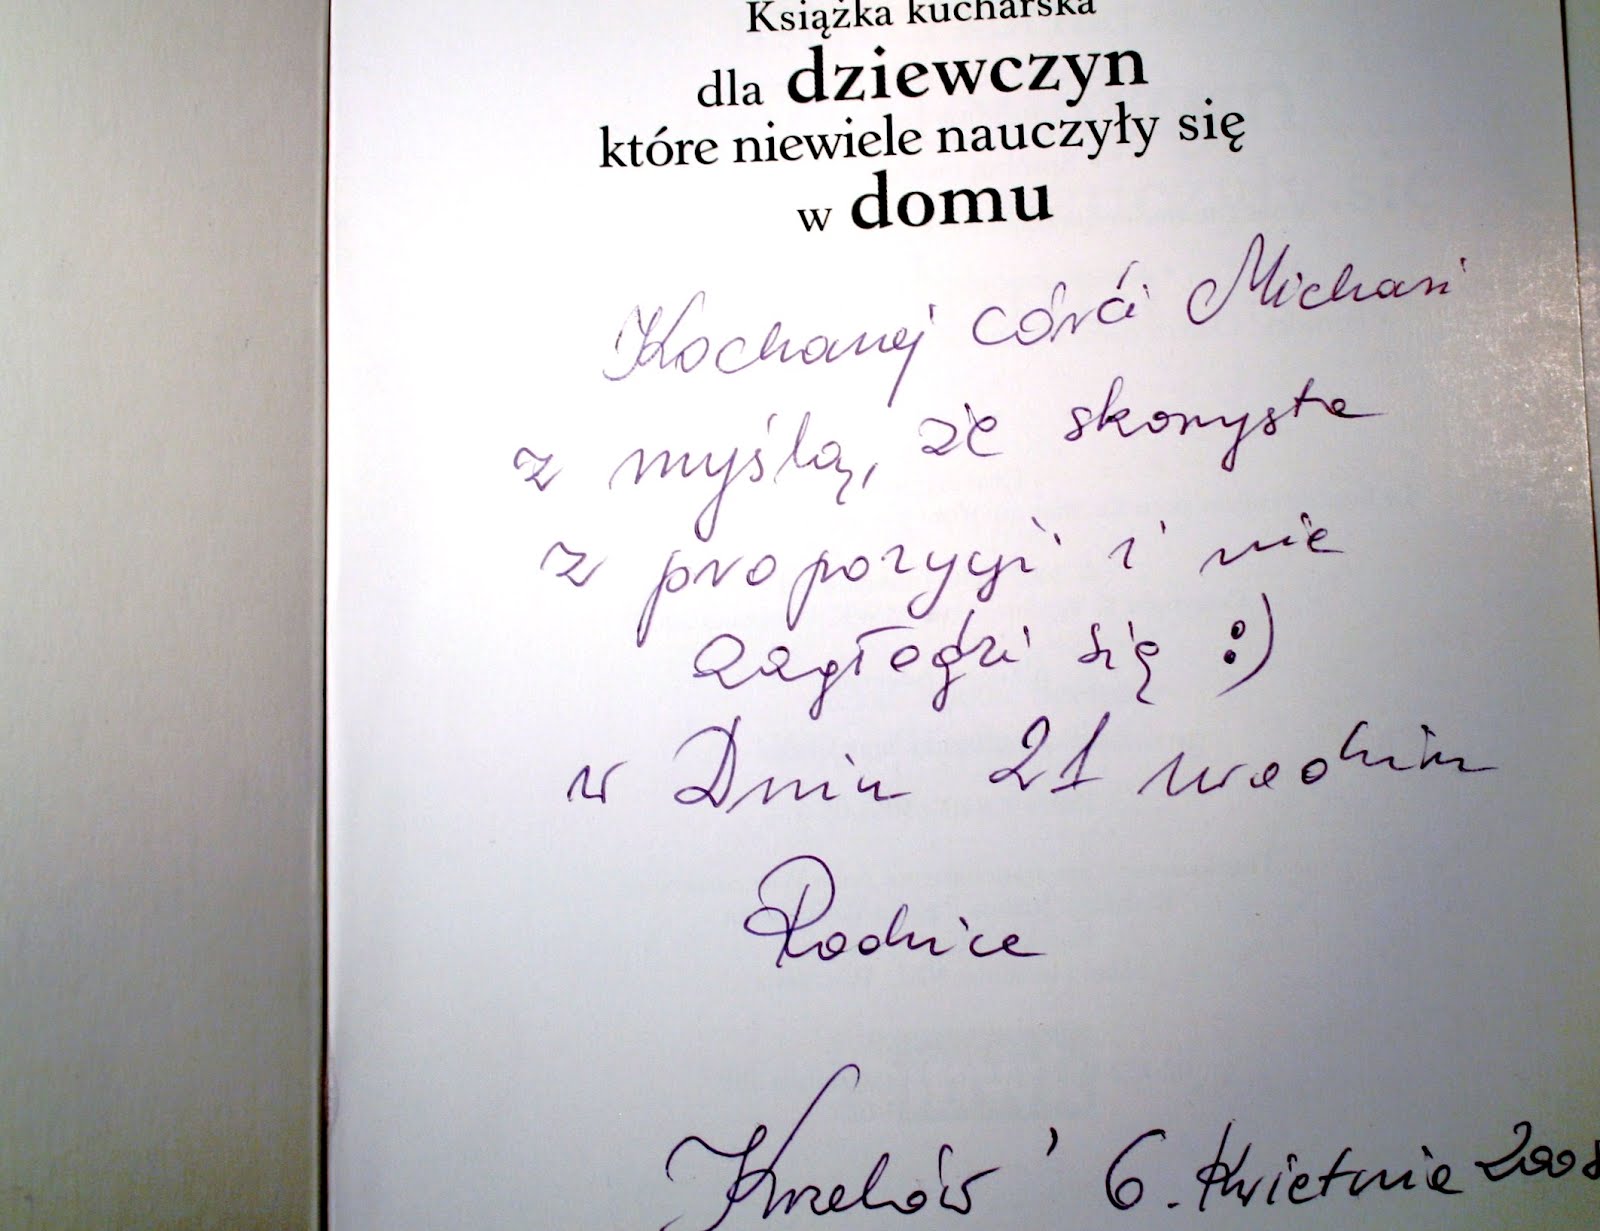 Książka kucharska
dla dziewczyn
które niewiele nauczyły się
w domu
Kochanej córci Michasi
z myślą, że skorzysta
z propozycji i nie
zagłodzi się :)
w Dniu 21 urodzin
Rodzice
Kraków 6. Kwietnia 2008